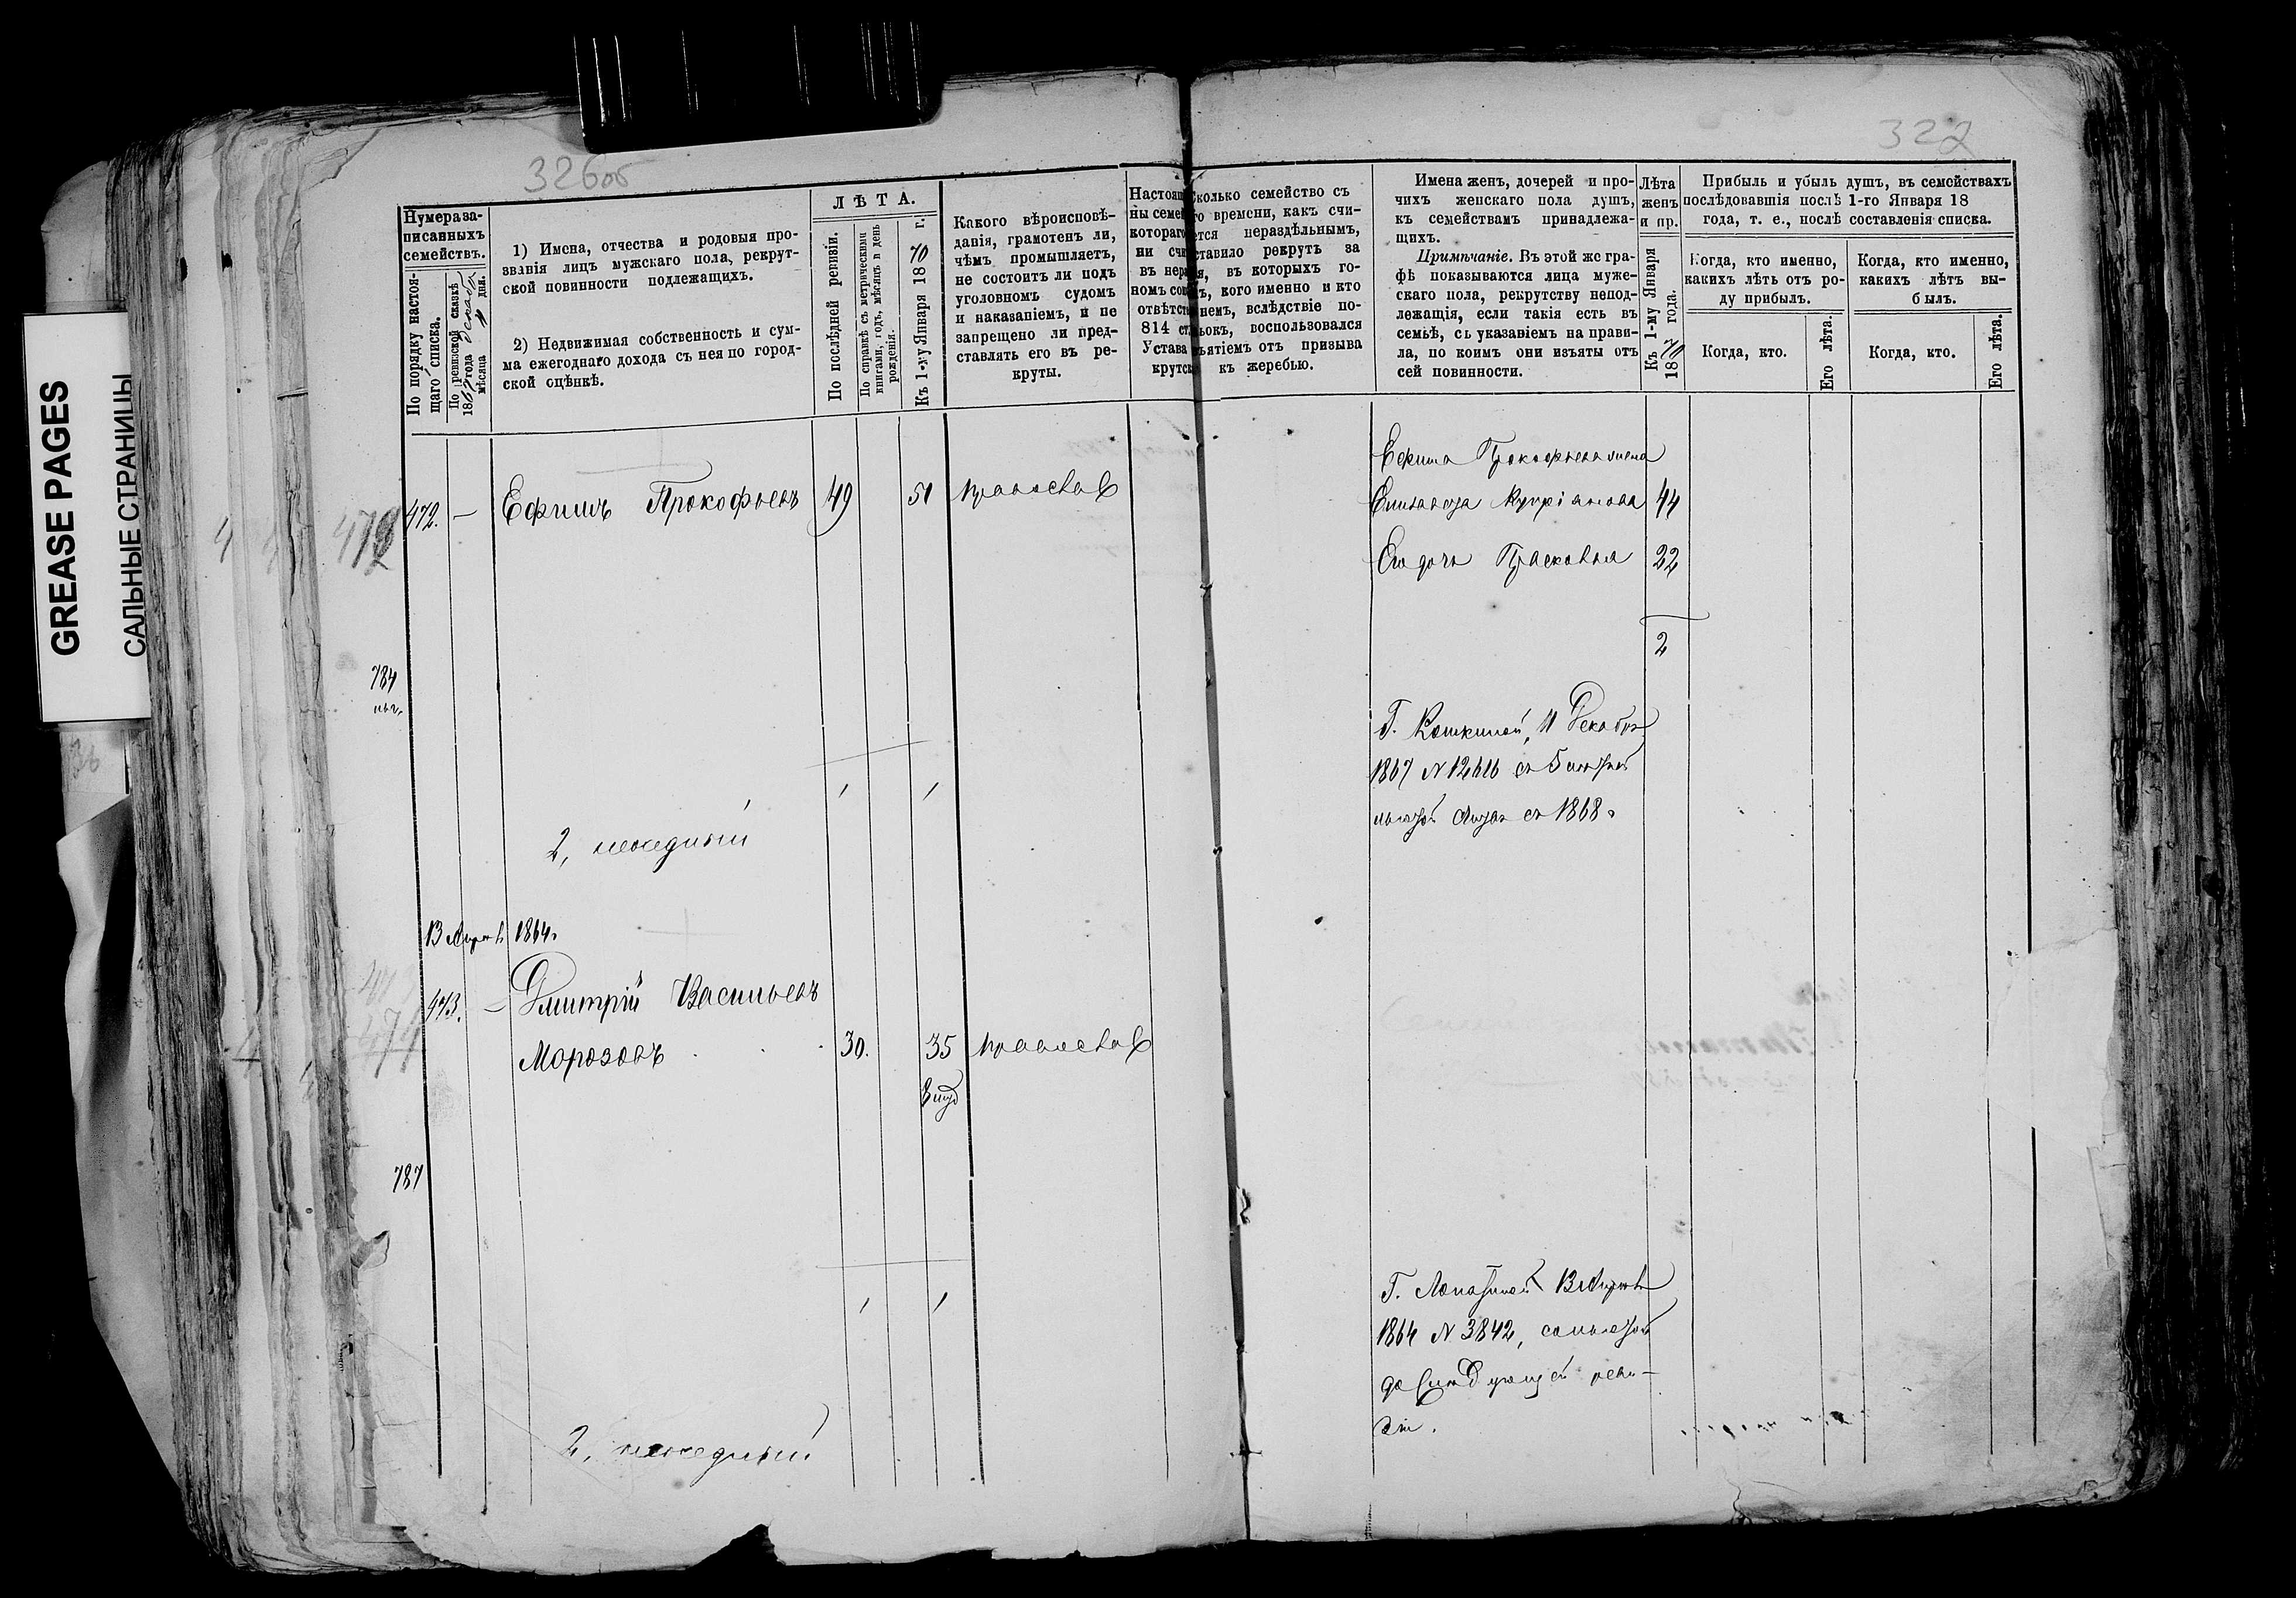 GREASE PAGES
САЛЬНЫЕ СТРАНИЦЫ
326об
322
Нумера за-
писанныхъ
семействъ.
По порядку настоя-
щаго списка.
По ревизской сказкѣ
186 года
мѣсяца дня.
1) Имена, отчества и родовыя про-
званія лицъ мужскаго пола, рекрут-
ской повинности подлежащихъ.
2) Недвижимая собственность и сум-
ма ежегоднаго дохода съ нея по город-
ской оцѣнкѣ.
ЛѢТА.
По послѣдней ревизіи.
По справкѣ съ метрическими
книгами, годъ, мѣсяцъ и день
рожденія.
Къ 1-му Января 1870 г.
Какого вѣроисповѣ-
данія, грамотенъ ли,
чѣмъ промышляетъ,
не состоитъ ли подъ
уголовномъ судомъ
и наказаніемъ, и не
запрещено ли пред-
ставлять его въ ре-
круты.
Настоящ
ны семей
котораго
ни счи
въ нера
номъ со
отвѣтст
814 ст.
Устава
крутск
сколько семейство съ
го времени, какъ счи-
ется нераздѣльнымъ,
ставило рекрутъ за
я, въ которыхъ го-
ъ, кого именно и кто
немъ, вслѣдствіе по-
ьокъ, воспользовался
ъятіемъ отъ призыва
къ жеребью.
Имена женъ, дочерей и про-
чихъ женскаго пола душъ,
къ семействамъ принадлежа-
щихъ.
Примѣчаніе. Въ этой же гра-
фѣ показываются лица муже-
скаго пола, рекрутству непод-
лежащія, если такія есть въ
семьѣ, съ указаніемъ на прави-
ла, по коимъ они изъяты отъ
сей повинности.
Лѣта
женъ
и пр.
Къ 1-му Января
1870 года.
Прибыль и убыль душъ, въ семействахъ
послѣдовавшія послѣ 1-го Января 18
года, т. е., послѣ составленія списка.
Когда, кто именно,
какихъ лѣтъ отъ ро-
ду прибылъ.
Когда, кто именно,
какихъ лѣтъ вы-
былъ.
Когда, кто.
Его лѣта.
Когда, кто.
Его лѣта.
472
472. — Ефимъ Прокофьевъ 49 51 православ
Ефима Прокофьева жена
Елизавета Купріанова 44
Его дочь Прасковья 22
2
784
Г. Кошкиной, 11 Декабря
1867 N 12616 съ
съ 1868.
1 1
2,
13 Апрѣля 1864.
473. — Дмитрій Васильевъ
Морозовъ 30. 35 православ
787
1 1
Г. Лопатиной 13 Апрѣля
1864 N 3842, со льготой
до Слѣдующей реви-
зіи.
2,